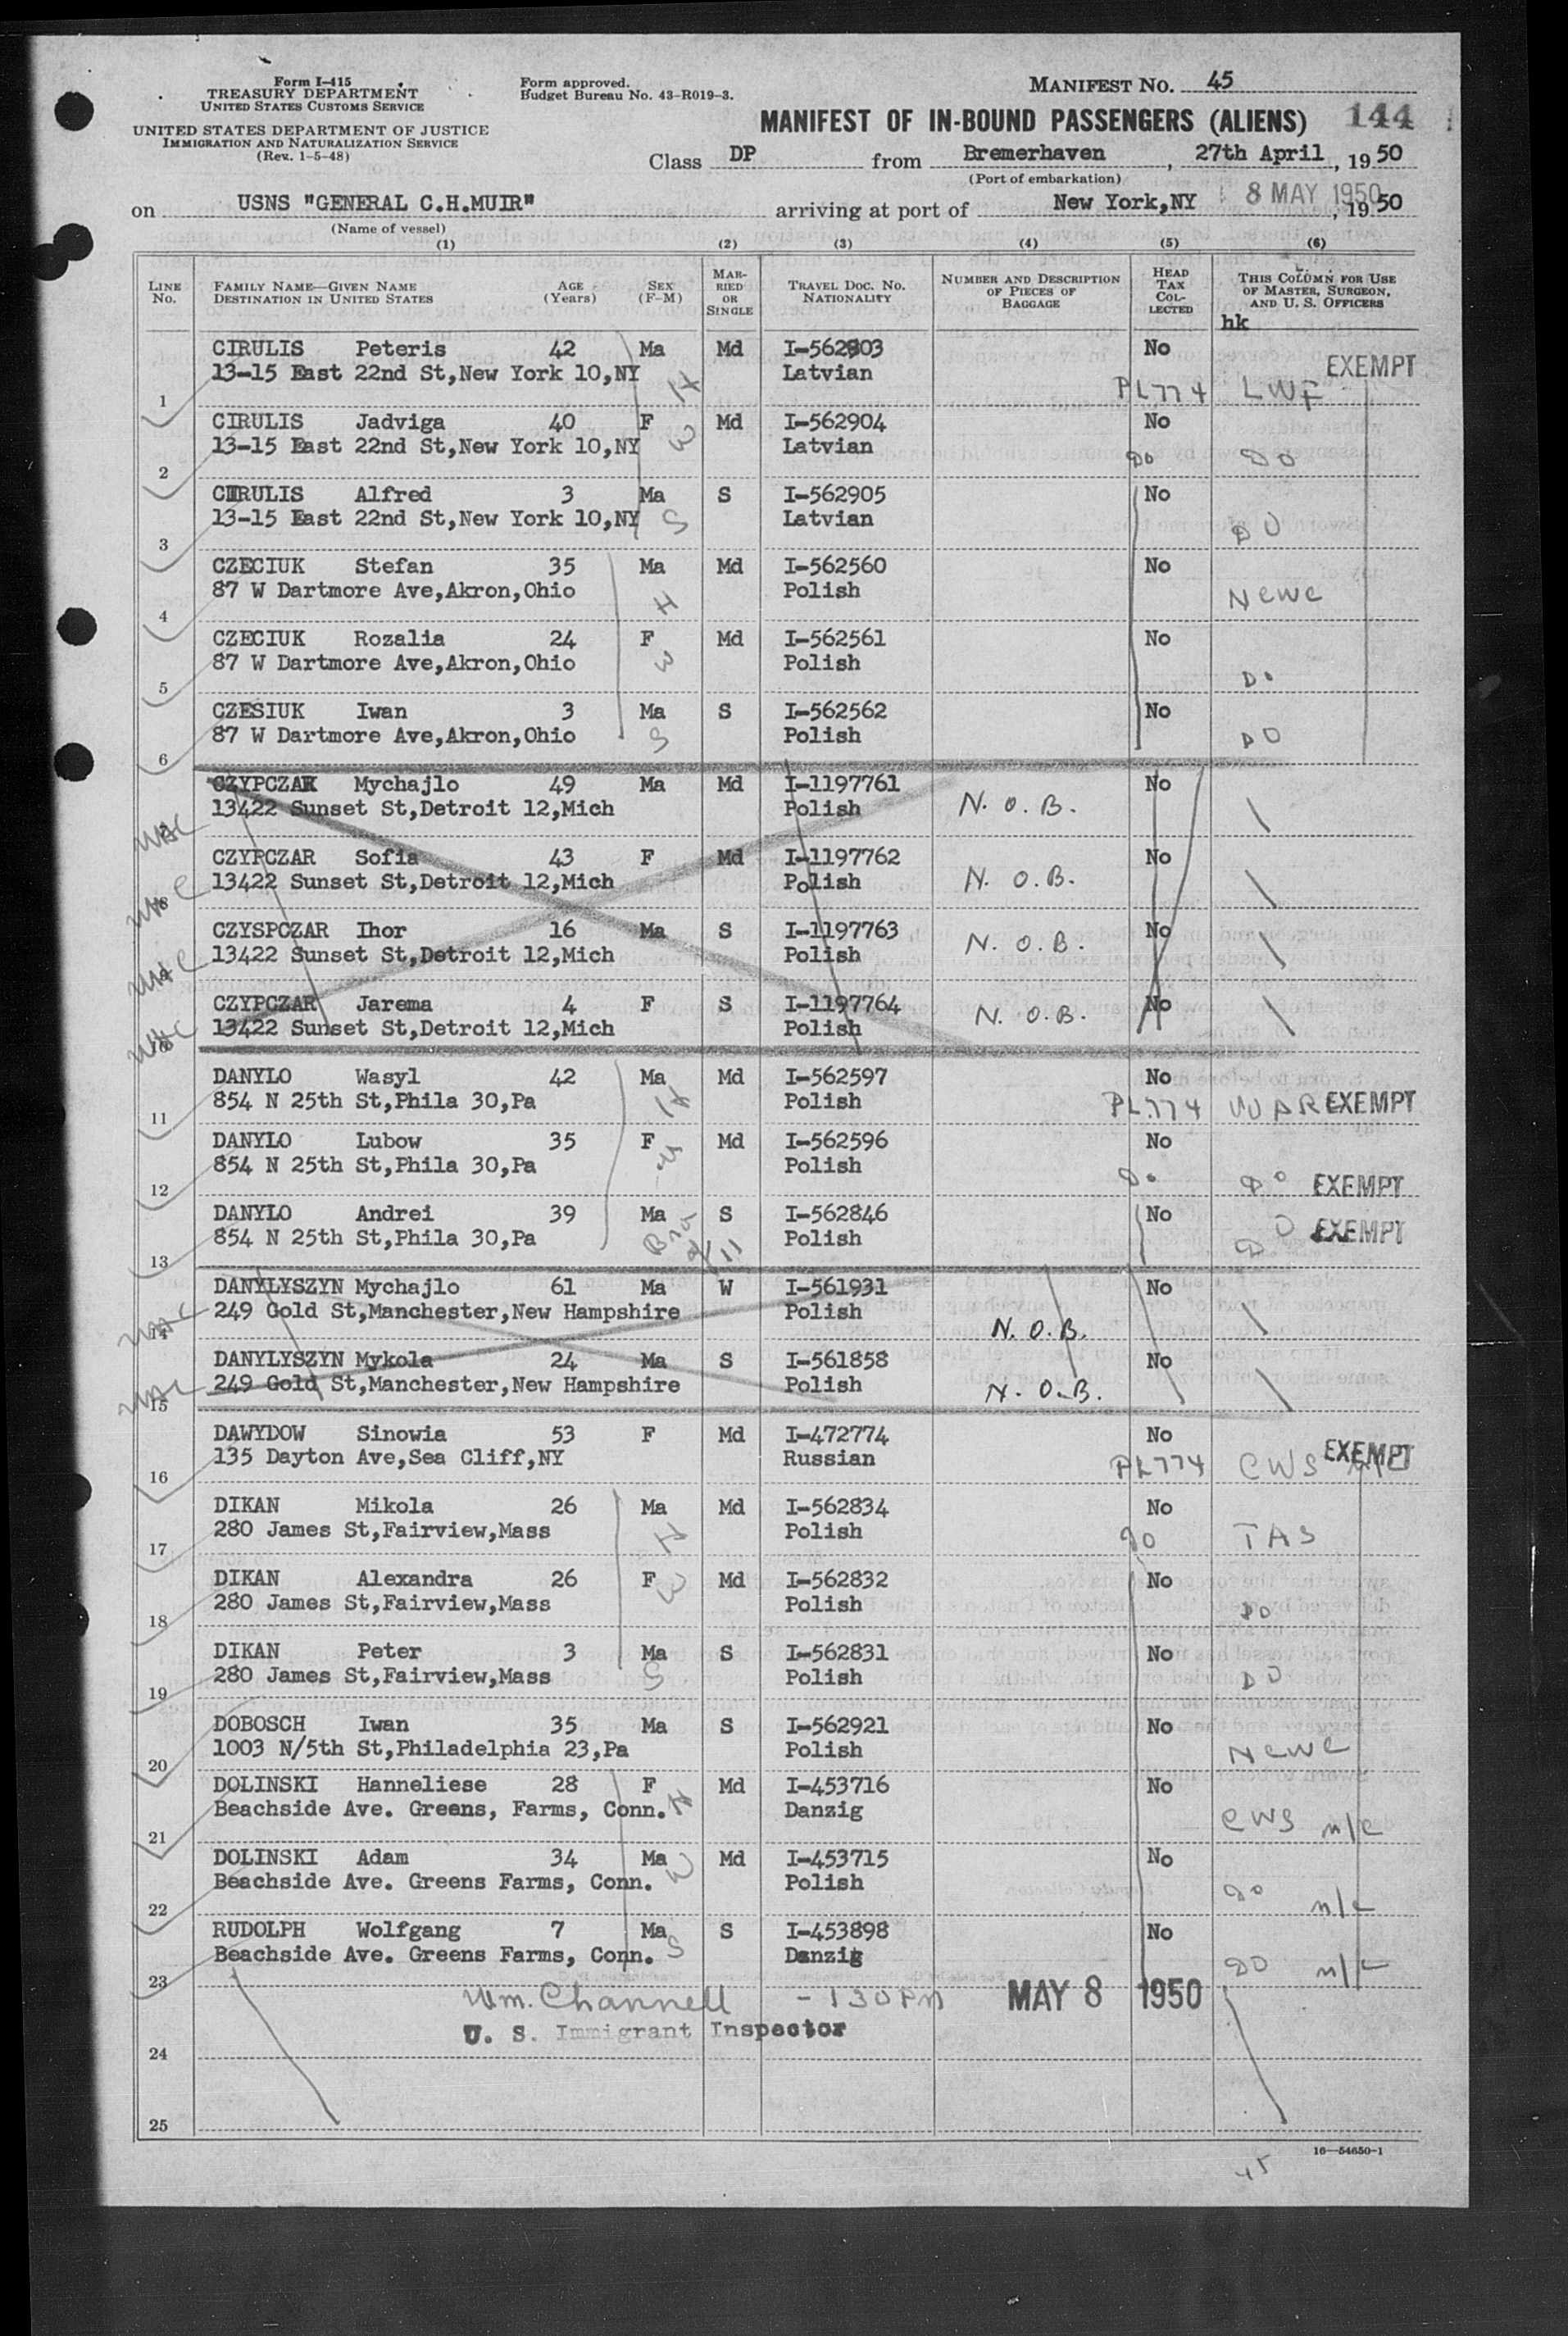 Form I-415
TREASURY DEPARTMENT
UNITED STATES CUSTOMS SERVICE
UNITED STATES DEPARTMENT OF JUSTICE
IMMIGRATION AND NATURALIZATION SERVICE
(Rev. 1-5-48)
Form approved.
Budget Bureau No. 43-R019-3.
MANIFEST NO. 45
MANIFEST OF IN-BOUND PASSENGERS (ALIENS) 144
Class DP from Bremerhaven, 27th April, 1950
(Port of embarkation)
on USNS "GENERAL C.H.MUIR" arriving at port of New York,NY 8 MAY 1950, 1950
(Name of vessel)
(1) (2) (3) (4) (5) (6)
LINE No. FAMILY NAME—GIVEN NAME DESTINATION IN UNITED STATES AGE (Years) SEX (F-M) MARRIED OR SINGLE TRAVEL DOC. NO. NATIONALITY NUMBER AND DESCRIPTION OF PIECES OF BAGGAGE HEAD TAX COLLECTED THIS COLUMN FOR USE OF MASTER, SURGEON, AND U. S. OFFICERS
hk
CIRULIS Peteris 42 Ma Md I-562903 No EXEMPT
13-15 East 22nd St,New York 10,NY H Latvian PL774 LWF
1
CIRULIS Jadviga 40 F W Md I-562904 No
13-15 East 22nd St,New York 10,NY Latvian Do Do
2
CIRULIS Alfred 3 Ma S I-562905 No
13-15 East 22nd St,New York 10,NY S Latvian DO
3
CZECIUK Stefan 35 Ma Md I-562560 No
87 W Dartmore Ave,Akron,Ohio H Polish NCWC
4
CZECIUK Rozalia 24 F Md I-562561 No
87 W Dartmore Ave,Akron,Ohio W Polish Do
5
CZESIUK Iwan 3 Ma S I-562562 No
87 W Dartmore Ave,Akron,Ohio S Polish DO
6
CZYPCZAR Mychajlo 49 Ma Md I-1197761 No
13422 Sunset St,Detroit 12,Mich Polish N. O. B.
CZYPCZAR Sofia 43 F Md I-1197762 No
13422 Sunset St,Detroit 12,Mich Polish N. O. B.
8
CZYSPCZAR Ihor 16 Ma S I-1197763 No
13422 Sunset St,Detroit 12,Mich Polish N. O. B.
CZYPCZAR Jarema 4 F S I-1197764 No
13422 Sunset St,Detroit 12,Mich Polish N. O. B.
10
DANYLO Wasyl 42 Ma Md I-562597 No
854 N 25th St,Phila 30,Pa H Polish PL774 WAR EXEMPT
11
DANYLO Lubow 35 F Md I-562596 No
854 N 25th St,Phila 30,Pa W Polish Do Do EXEMPT
12
DANYLO Andrei 39 Ma S I-562846 No
854 N 25th St,Phila 30,Pa Bro 11 Polish DO EXEMPT
13
DANYLYSZYN Mychajlo 61 Ma W I-561931 No
249 Gold St,Manchester,New Hampshire Polish N. O. B.
14
DANYLYSZYN Mykola 24 Ma S I-561858 No
249 Gold St,Manchester,New Hampshire Polish N. O. B.
15
DAWYDOW Sinowia 53 F Md I-472774 No
135 Dayton Ave,Sea Cliff,NY Russian PL774 CWS EXEMPT
16
DIKAN Mikola 26 Ma Md I-562834 No
280 James St,Fairview,Mass H Polish DO TAS
17
DIKAN Alexandra 26 F W Md I-562832 No
280 James St,Fairview,Mass Polish DO
18
DIKAN Peter 3 Ma S I-562831 No
280 James St,Fairview,Mass S Polish DO
19
DOBOSCH Iwan 35 Ma S I-562921 No
1003 N/5th St,Philadelphia 23,Pa Polish NCWC
20
DOLINSKI Hanneliese 28 F Md I-453716 No
Beachside Ave. Greens, Farms, Conn. H Danzig CWS n/c
21
DOLINSKI Adam 34 Ma W Md I-453715 No
Beachside Ave. Greens Farms, Conn. Polish DO n/c
22
RUDOLPH Wolfgang 7 Ma S I-453898 No
Beachside Ave. Greens Farms, Conn. S Danzig DO n/c
23
Wm. Channell - 130 PM MAY 8 1950
U. S. Immigrant Inspector
24
25
16—54650-1
45